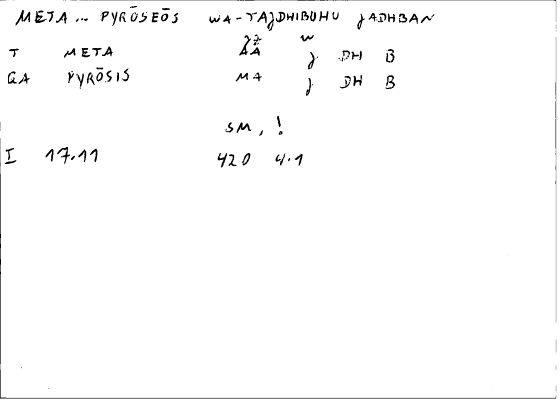 META ... PYRŌSEŌS WA-TAJDHIBUHU JADHBAN
ZZ W
T META AA J DH B
GA PYRŌSIS MA J DH B
SM, !
I 17.11 420 4.1